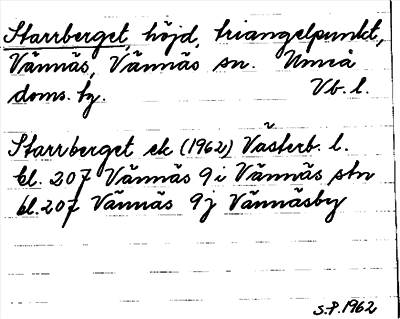 Starrberget, höjd, triangelpunkt,
Vännäs, Vännäs sn. Umeå
doms. tg. Vb. l.
Starrberget ek (1962) Västerb. l.
bl. 207 Vännäs 9 i Vännäs stn
bl. 207 Vännäs 9 j Vännäsby
S.P. 1962